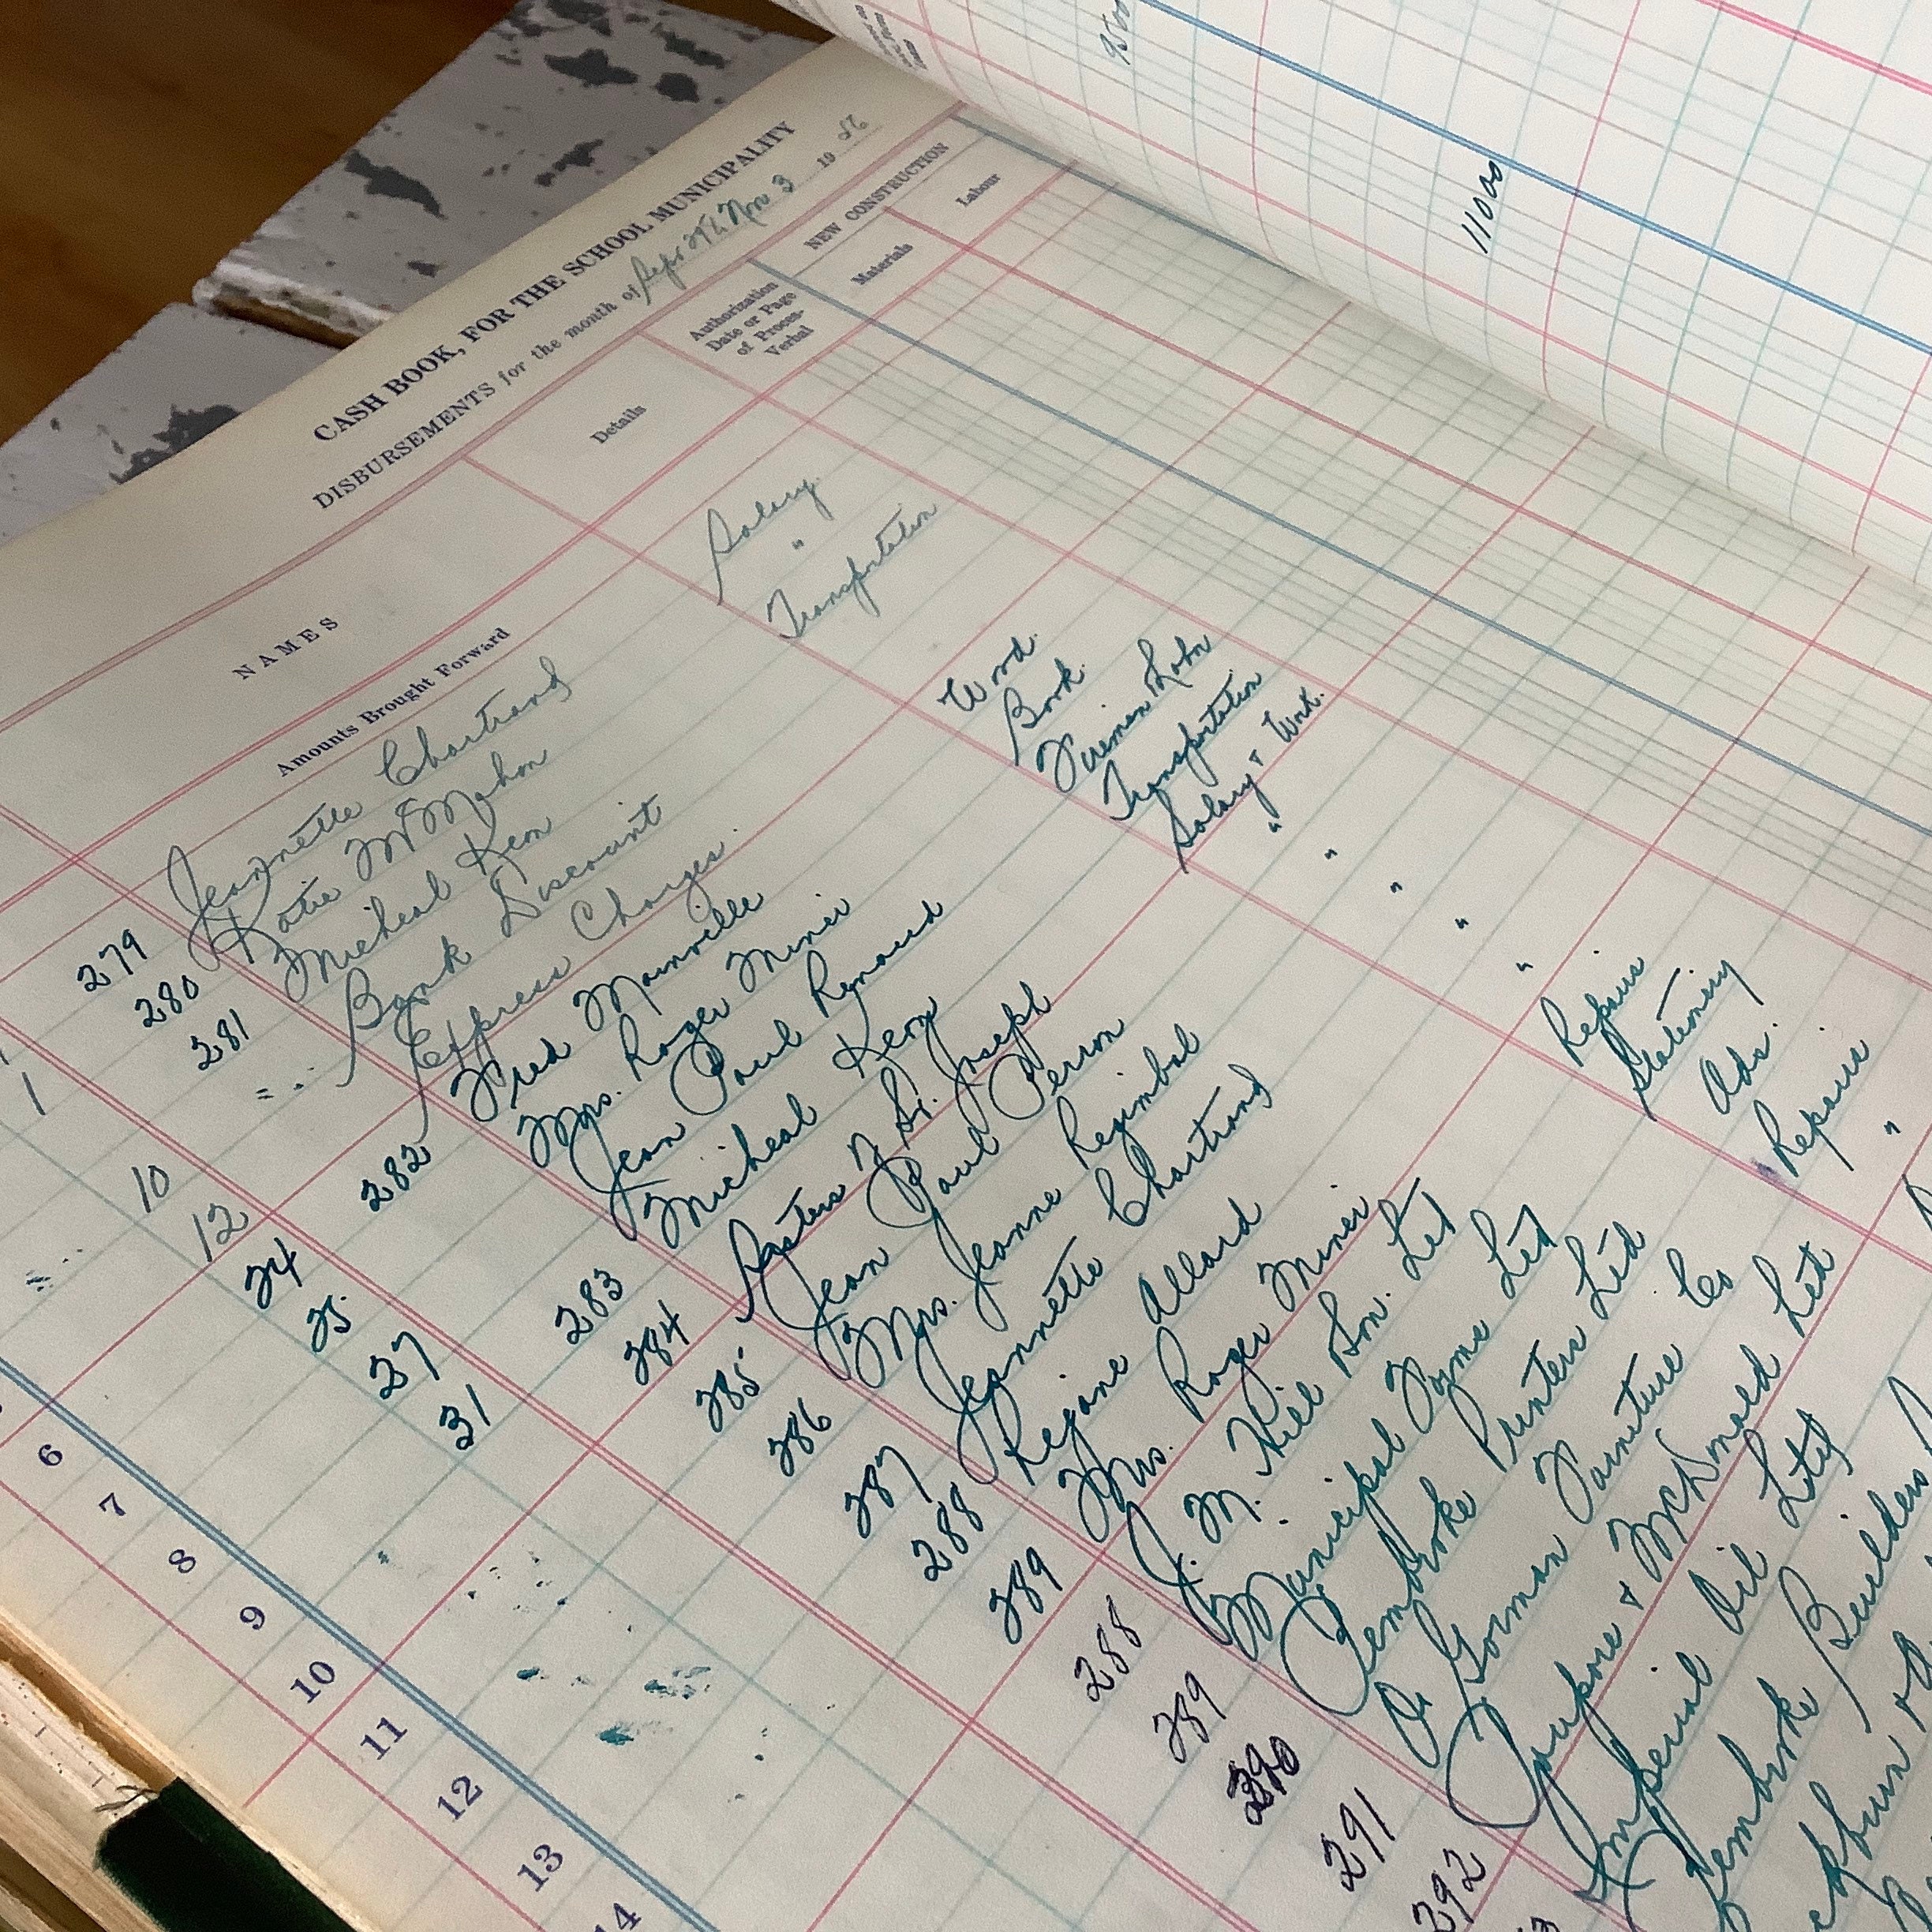 9500
1100
CASH BOOK, FOR THE SCHOOL MUNICIPALITY
DISBURSEMENTS for the month of Sept 29th Nov 3 19 56
NAMES
Details
Authorization
Date or Page
of Proces-
Verbal
NEW CONSTRUCTION
Materials
Labour
Amounts Brought Forward
1 279 Jeannette Chartrand Salary
280 Katie McMahon "
281 Micheal Keon Transportation
Bank Discount
10 Express Charges
12 282 Fred Mainville Wood
24 Mrs. Roger Miner Book
25 Jean Paul Renaud
27 283 Micheal Keon Transportation
31 284 Sisters of St. Joseph Salary & Work.
285 Jean Paul Perron "
286 Mrs. Jeanne Regimbal "
287 Jeannette Chartrand "
288 Rejane Allard "
289 Mrs. Roger Miner "
288 J. M. Hill Son. Ltd Repairs
289 Municipal Forms Ltd Stationery
290 Pembroke Printers Ltd Ads.
291 Gorman Furniture Co Repairs
292 & McDonald Ltd "
Imperial Oil Ltd
Pembroke Builders
6
7
8
9
10
11
12
13
14